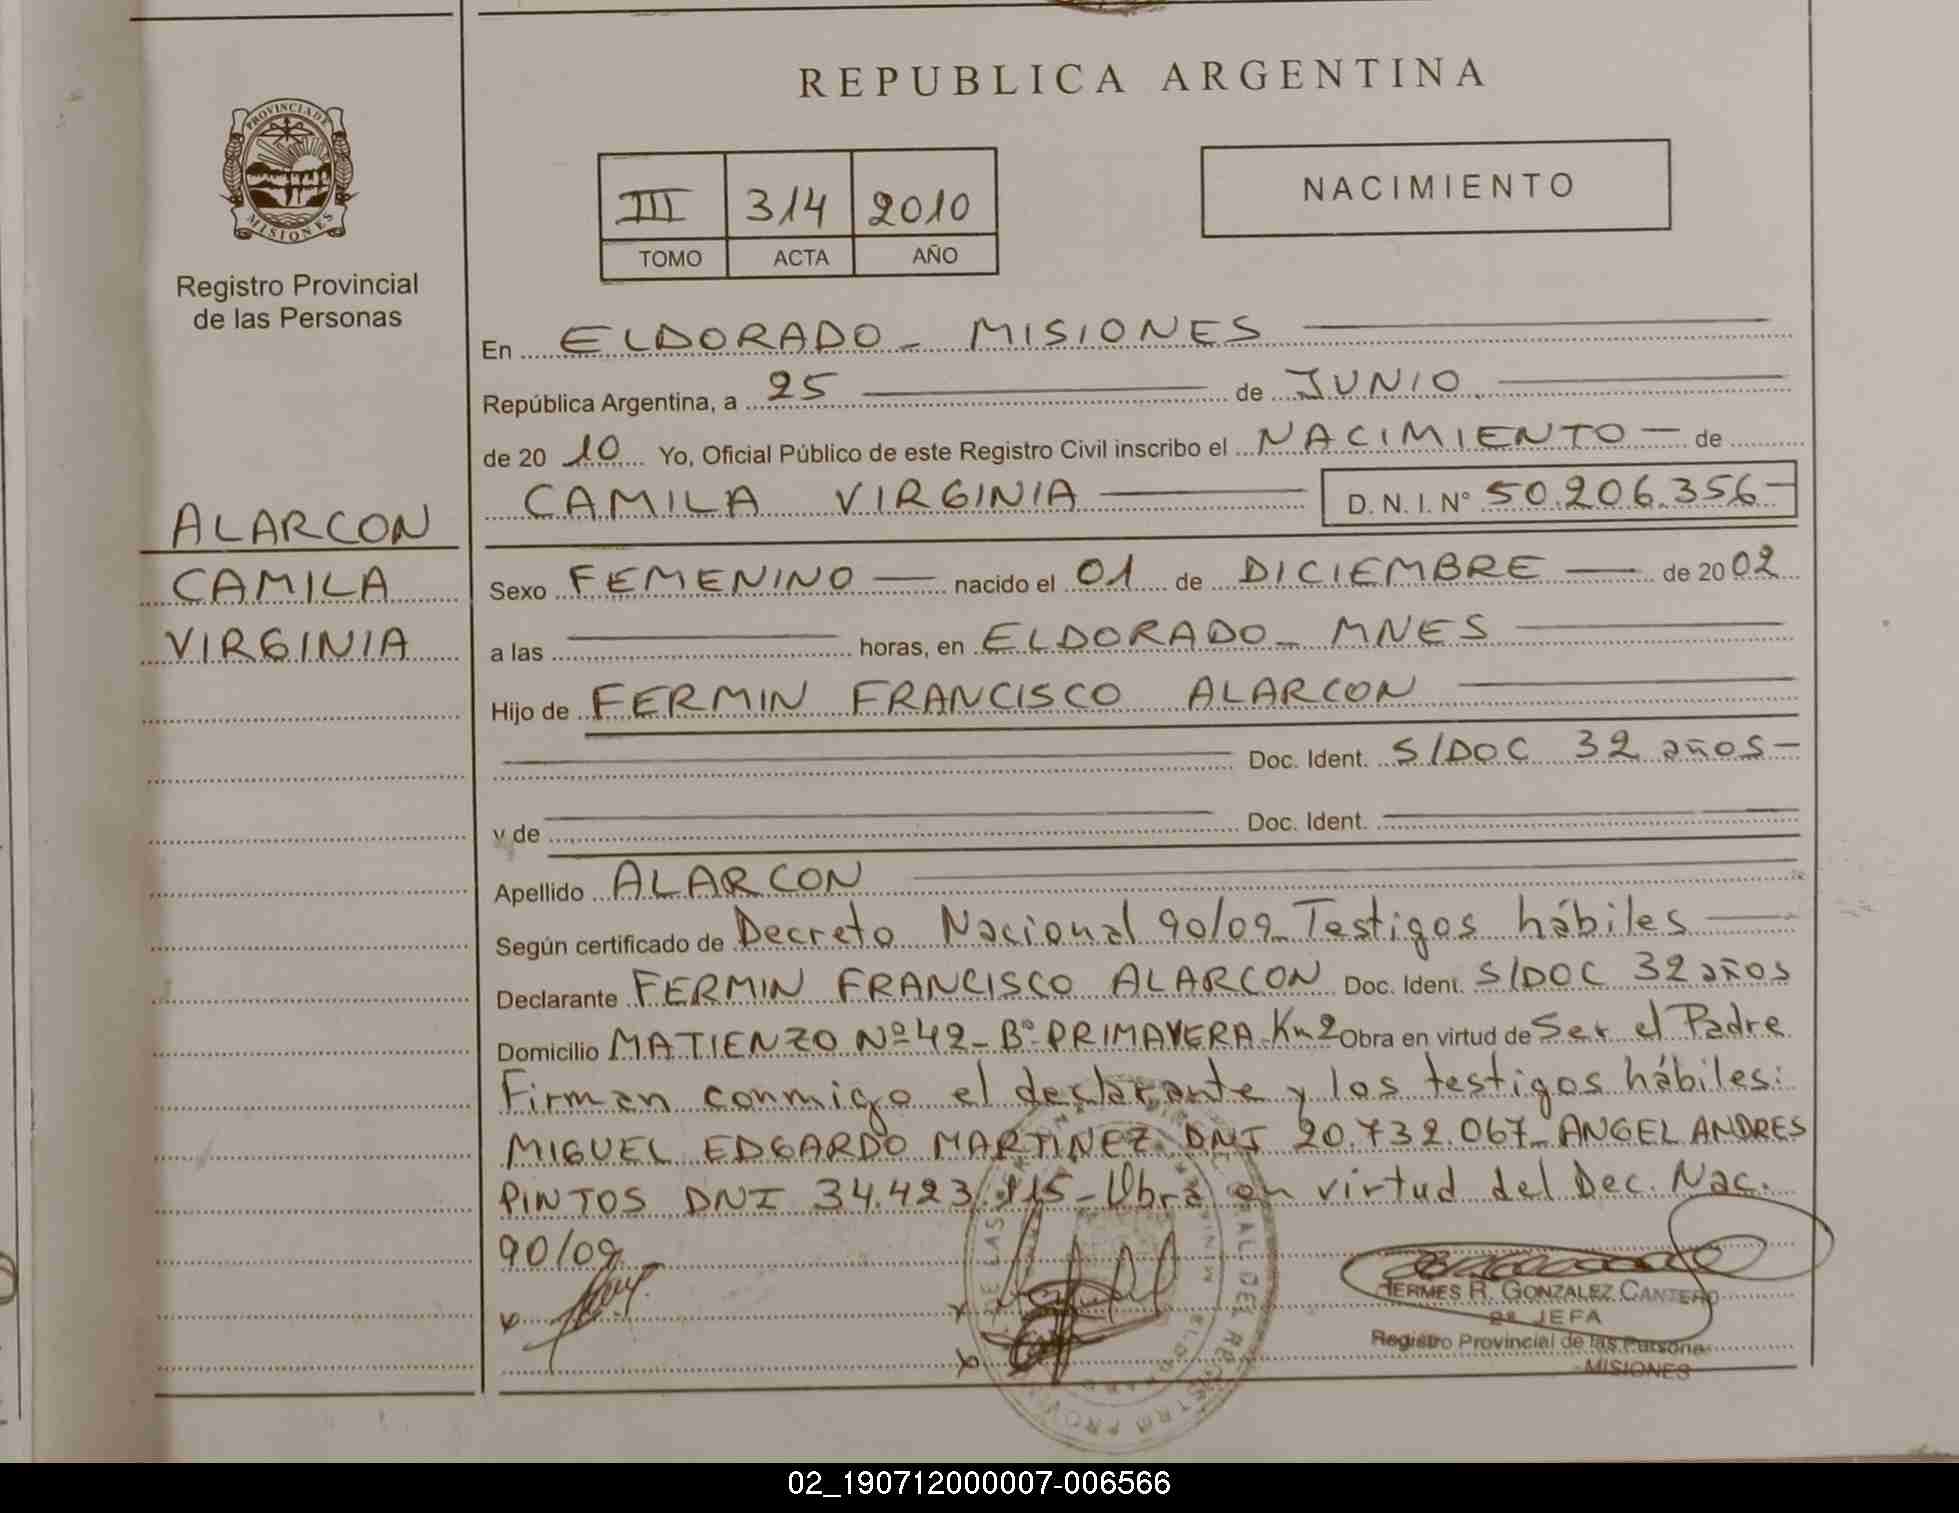 REPUBLICA ARGENTINA
PROVINCIA DE
MISIONES
Registro Provincial
de las Personas
III 314 2010
TOMO ACTA AÑO
NACIMIENTO
En ELDORADO - MISIONES
República Argentina, a 25 de JUNIO
de 20 10 Yo, Oficial Público de este Registro Civil inscribo el NACIMIENTO - de
CAMILA VIRGINIA D.N.I. Nº 50.206.356-
ALARCON
CAMILA
VIRGINIA
Sexo FEMENINO nacido el 01 de DICIEMBRE de 20 02
a las horas, en ELDORADO - MNES
Hijo de FERMIN FRANCISCO ALARCON
Doc. Ident. S/DOC 32 años -
y de Doc. Ident.
Apellido ALARCON
Según certificado de Decreto Nacional 90/09 - Testigos hábiles
Declarante FERMIN FRANCISCO ALARCON Doc. Ident. S/DOC 32 años
Domicilio MATIENZO Nº 42 - Bº PRIMAVERA - Km 2 Obra en virtud de Ser el Padre
Firman conmigo el declarante y los testigos hábiles:
MIGUEL EDGARDO MARTINEZ DNI 20.732.067 - ANGEL ANDRES
PINTOS DNI 34.423. - Obra en virtud del Dec. Nac.
90/09
HERMES R. GONZALEZ CANTERO
2ª JEFA
Registro Provincial de las Persona
MISIONES
02_190712000007-006566